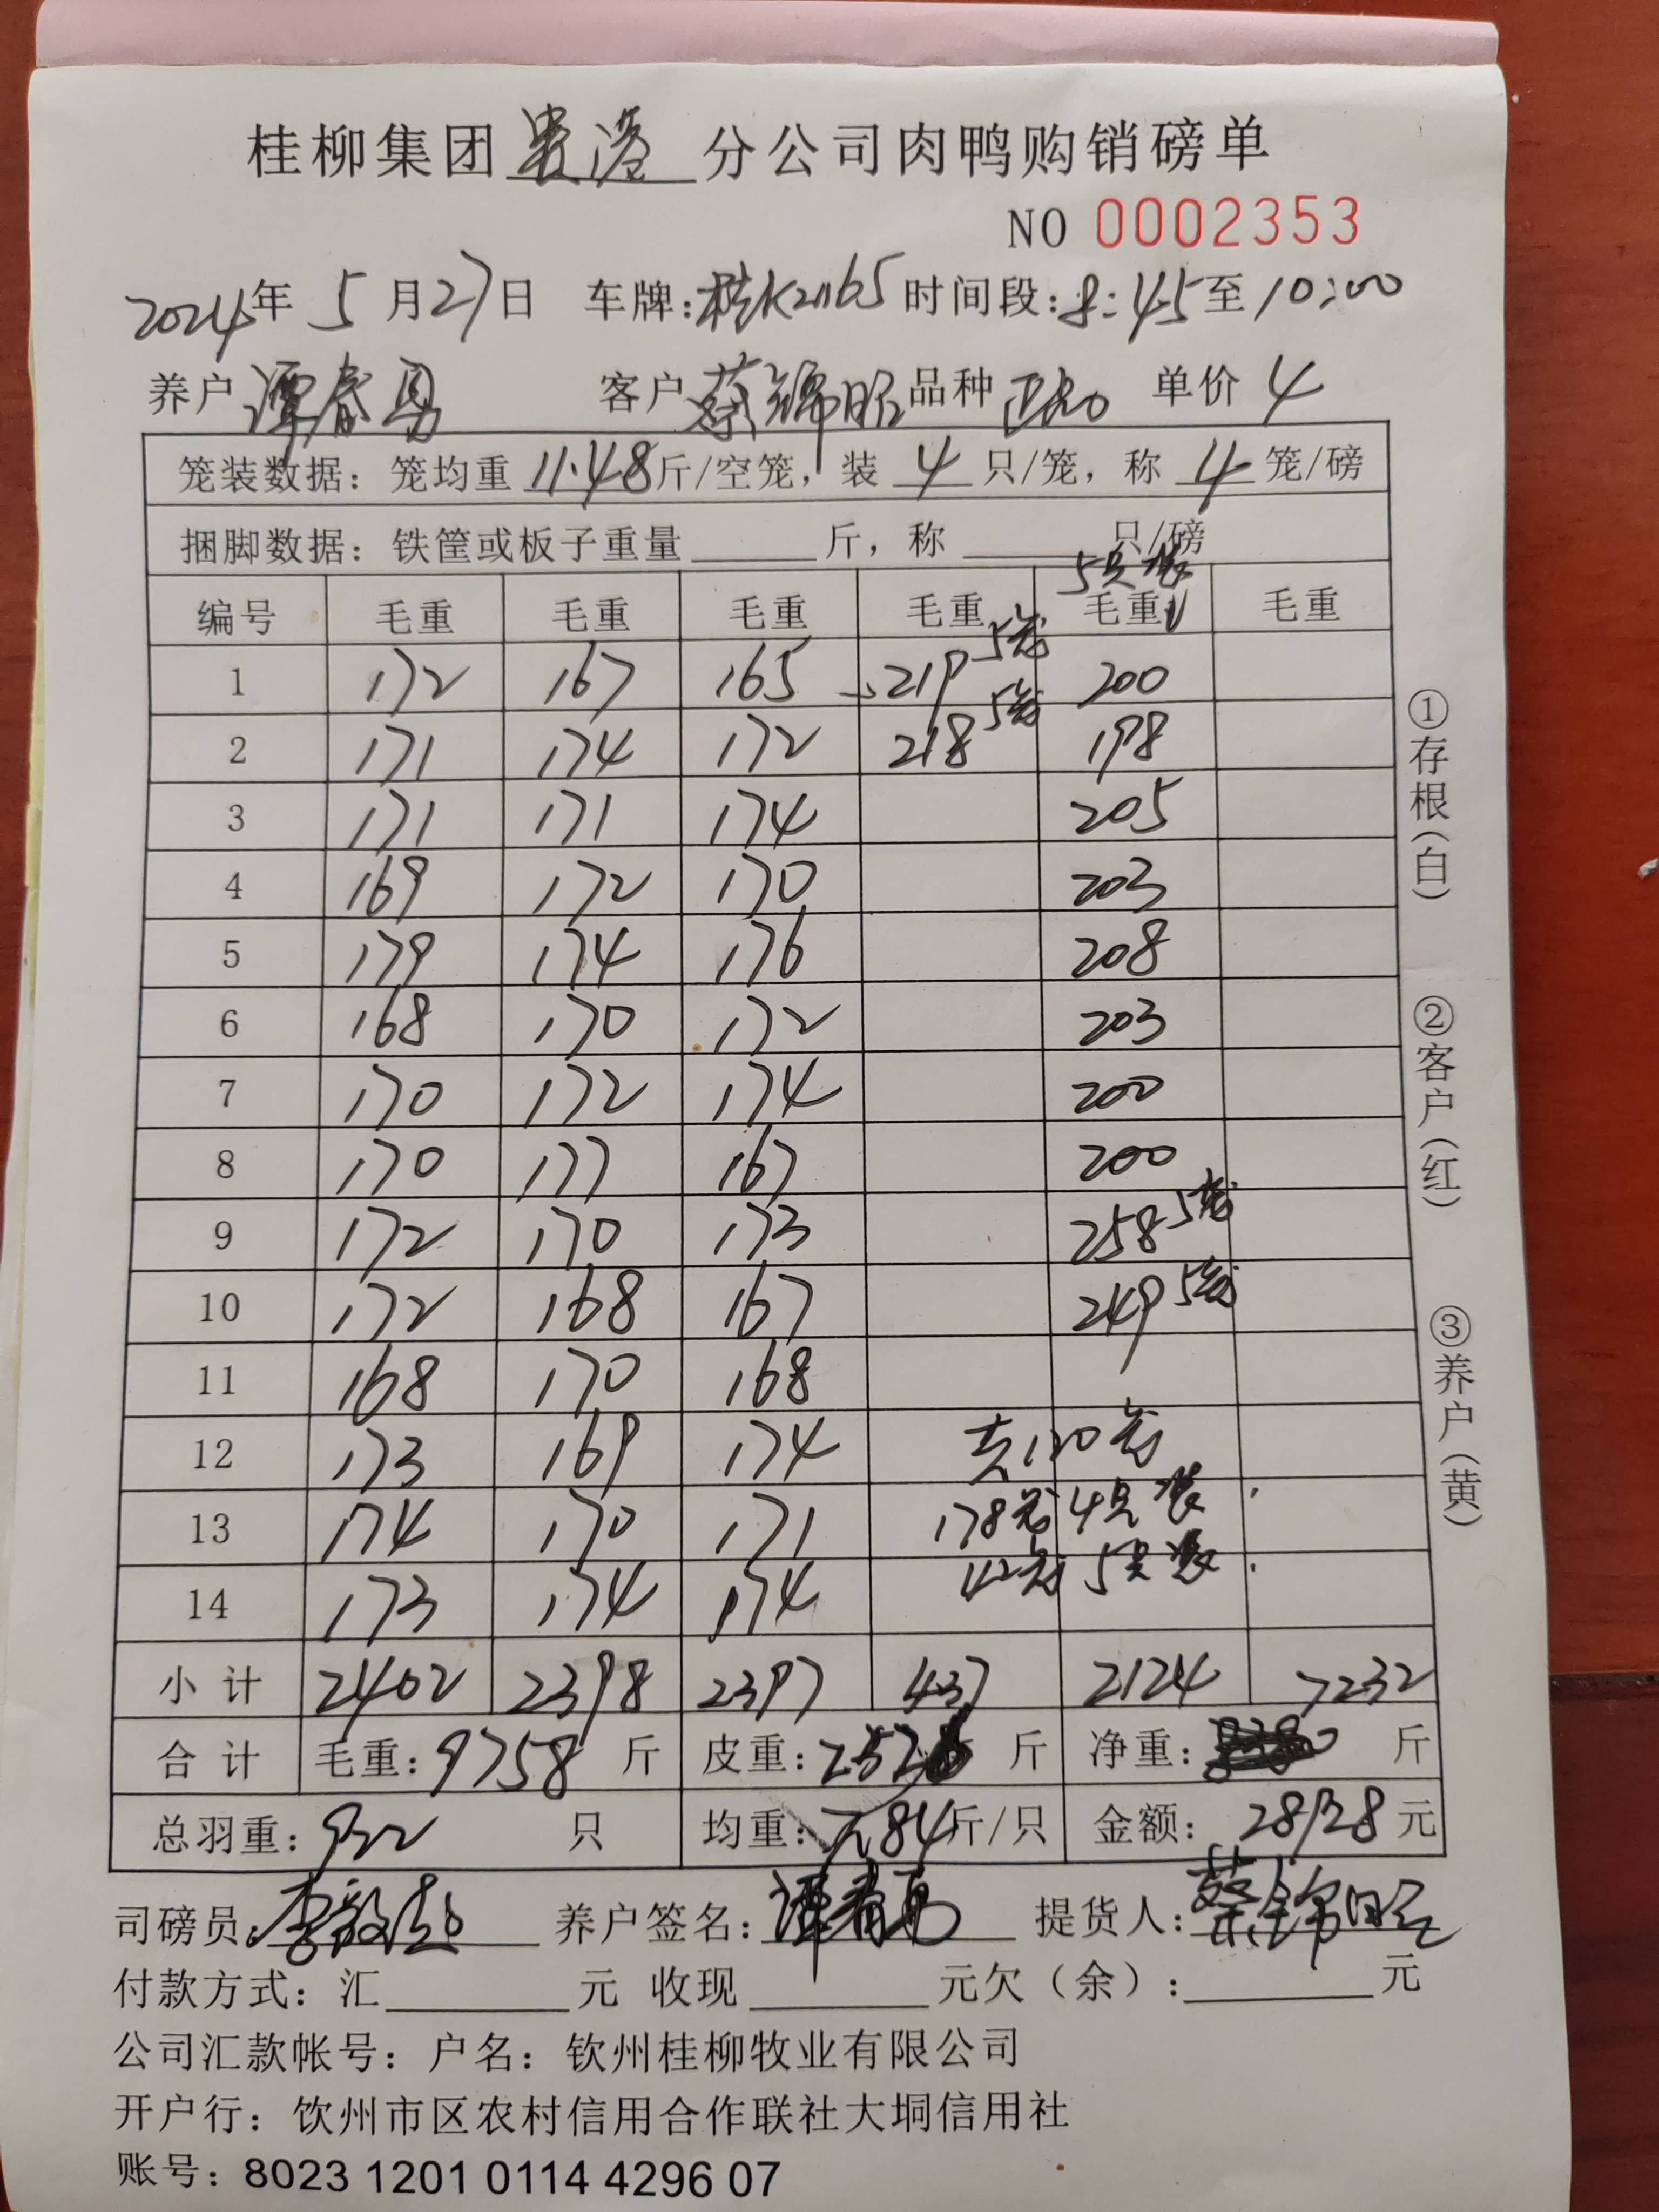 桂柳集团 贵港 分公司肉鸭购销磅单
NO 0002353
2024年 5 月27日 车牌:桂K21165 时间段:8:45至10:00
养户 谭春勇 客户 蔡锦昭 品种 单价 4
笼装数据：笼均重 11.48斤/空笼，装 4 只/笼，称 4 笼/磅
捆脚数据：铁筐或板子重量 斤，称 只/磅
5只装
编号 毛重 毛重 毛重 毛重 毛重 毛重
1 172 167 165 219 5笼 200
2 171 174 172 218 5笼 198
3 171 171 174 205
4 169 172 170 203
5 179 174 176 208
6 168 170 172 203
7 170 172 174 200
8 170 177 167 200
9 172 170 173 258 5笼
10 172 168 167 249 5笼
11 168 170 168
12 173 169 174 共220笼
13 174 170 171 178笼4只装
14 173 174 174 42笼5只装
小计 2402 2398 2397 437 2124 7232
合计 毛重：9758 斤 皮重：2526 斤 净重： 斤
总羽重：922 只 均重：7.84斤/只 金额：28928 元
司磅员: 养户签名：谭春勇 提货人：蔡锦昭
付款方式：汇 元 收现 元欠（余）： 元
公司汇款帐号：户名：钦州桂柳牧业有限公司
开户行：饮州市区农村信用合作联社大垌信用社
账号：8023 1201 0114 4296 07
①存根(白) ②客户(红) ③养户(黄)